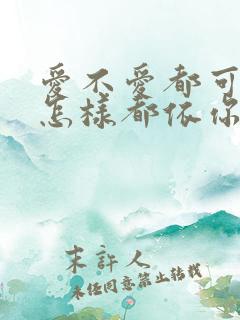 愛不愛都可
怎樣都依你
末許人
未经同意禁止转载